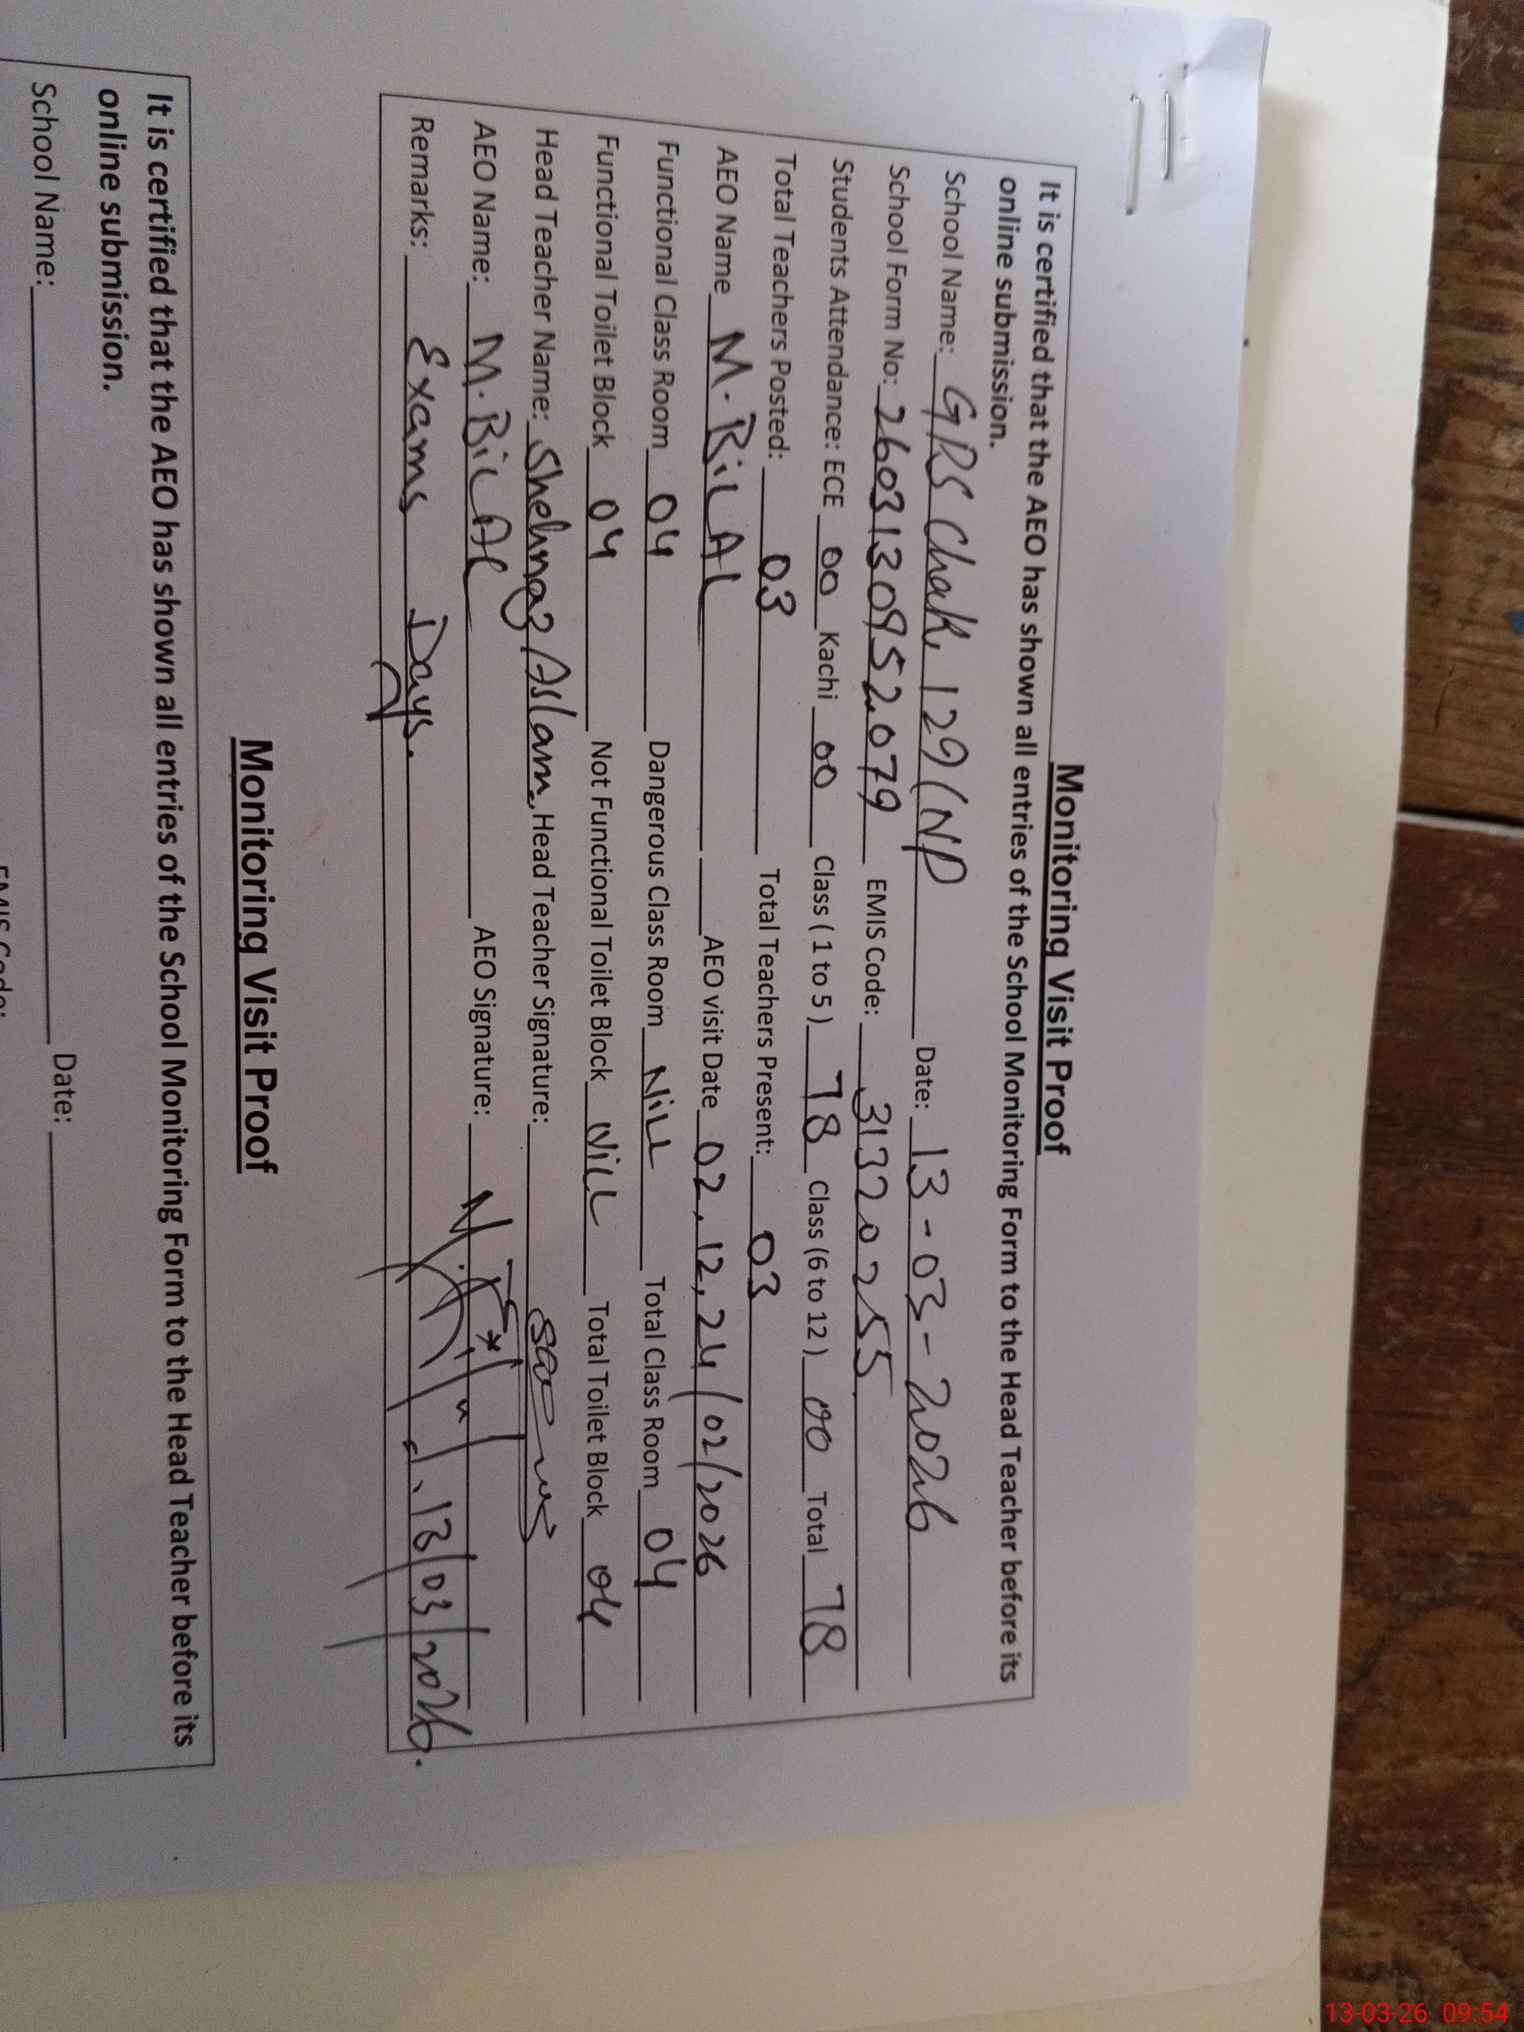 Monitoring Visit Proof
It is certified that the AEO has shown all entries of the School Monitoring Form to the Head Teacher before its
online submission.
School Name: GPS Chak 129(NP Date: 13-03-2026
School Form No: 2603130952079 EMIS Code: 31320255
Students Attendance: ECE 00 Kachi 00 Class ( 1 to 5 ) 78 Class (6 to 12 ) 00 Total 78
Total Teachers Posted: 03 Total Teachers Present: 03
AEO Name M. BiLAL AEO visit Date 02,12,24/02/2026
Functional Class Room 04 Dangerous Class Room NiLL Total Class Room 04
Functional Toilet Block 04 Not Functional Toilet Block NiLL Total Toilet Block 04
Head Teacher Name: Shehnaz Aslam Head Teacher Signature:
AEO Name: M. BiLAL AEO Signature:
Remarks: Exams Days. 13/03/2026.
Monitoring Visit Proof
It is certified that the AEO has shown all entries of the School Monitoring Form to the Head Teacher before its
online submission.
School Name: Date:
EMIS Code:
13-03-26 09:54